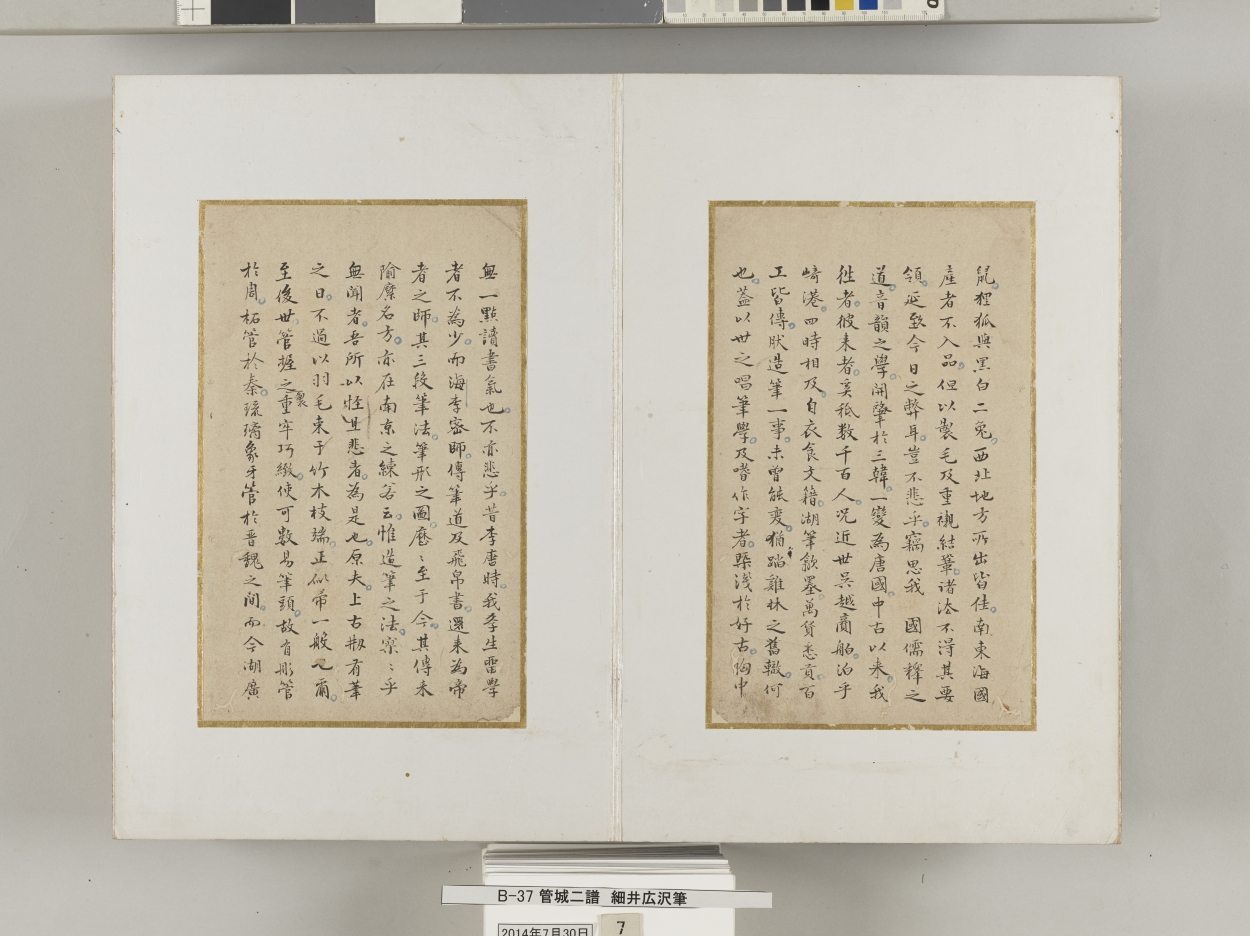 鼠狸狐與黑白二兔西北地方所出皆佳南東海國
產者不入品但以製毛及重襯結華諸法不得其要
領延致今日之弊耳豈不悲乎竊思我國儒釋之
道音韻之學開肇於三韓一變為唐國中古以来我
徃者彼来者奚秖数千百人况近世吳越賣舶泊乎
崎港四時相及自衣食文籍湖筆歙墨萬貨悉貢百
工皆傳肰造筆一事未曾能變猶踏雞林之舊轍何
也蓋以世之唱筆學及嗜作字者槩淺於好古胸中
無一點讀書氣也不亦悲乎昔李唐時我孝生雷學
者不為少而海李密師傳筆道及飛帛書還来為帝
者之師其三段筆法筆形之圖歷〻至于今其傳未
隃麋名方亦在南京之練若云惟造筆之法寥〻乎
無聞者吾所以怪且悲者為是也原夫上古刱有筆
之日不過以羽毛束于竹木枝端正似帚一般也爾
至後世管握之製重牢巧緻使可數易筆頭故有彤管
於周柘管於秦琉璃象牙管於晋魏之間而今湖廣
B-37 管城二譜 細井広沢筆
2014年7月30日
7